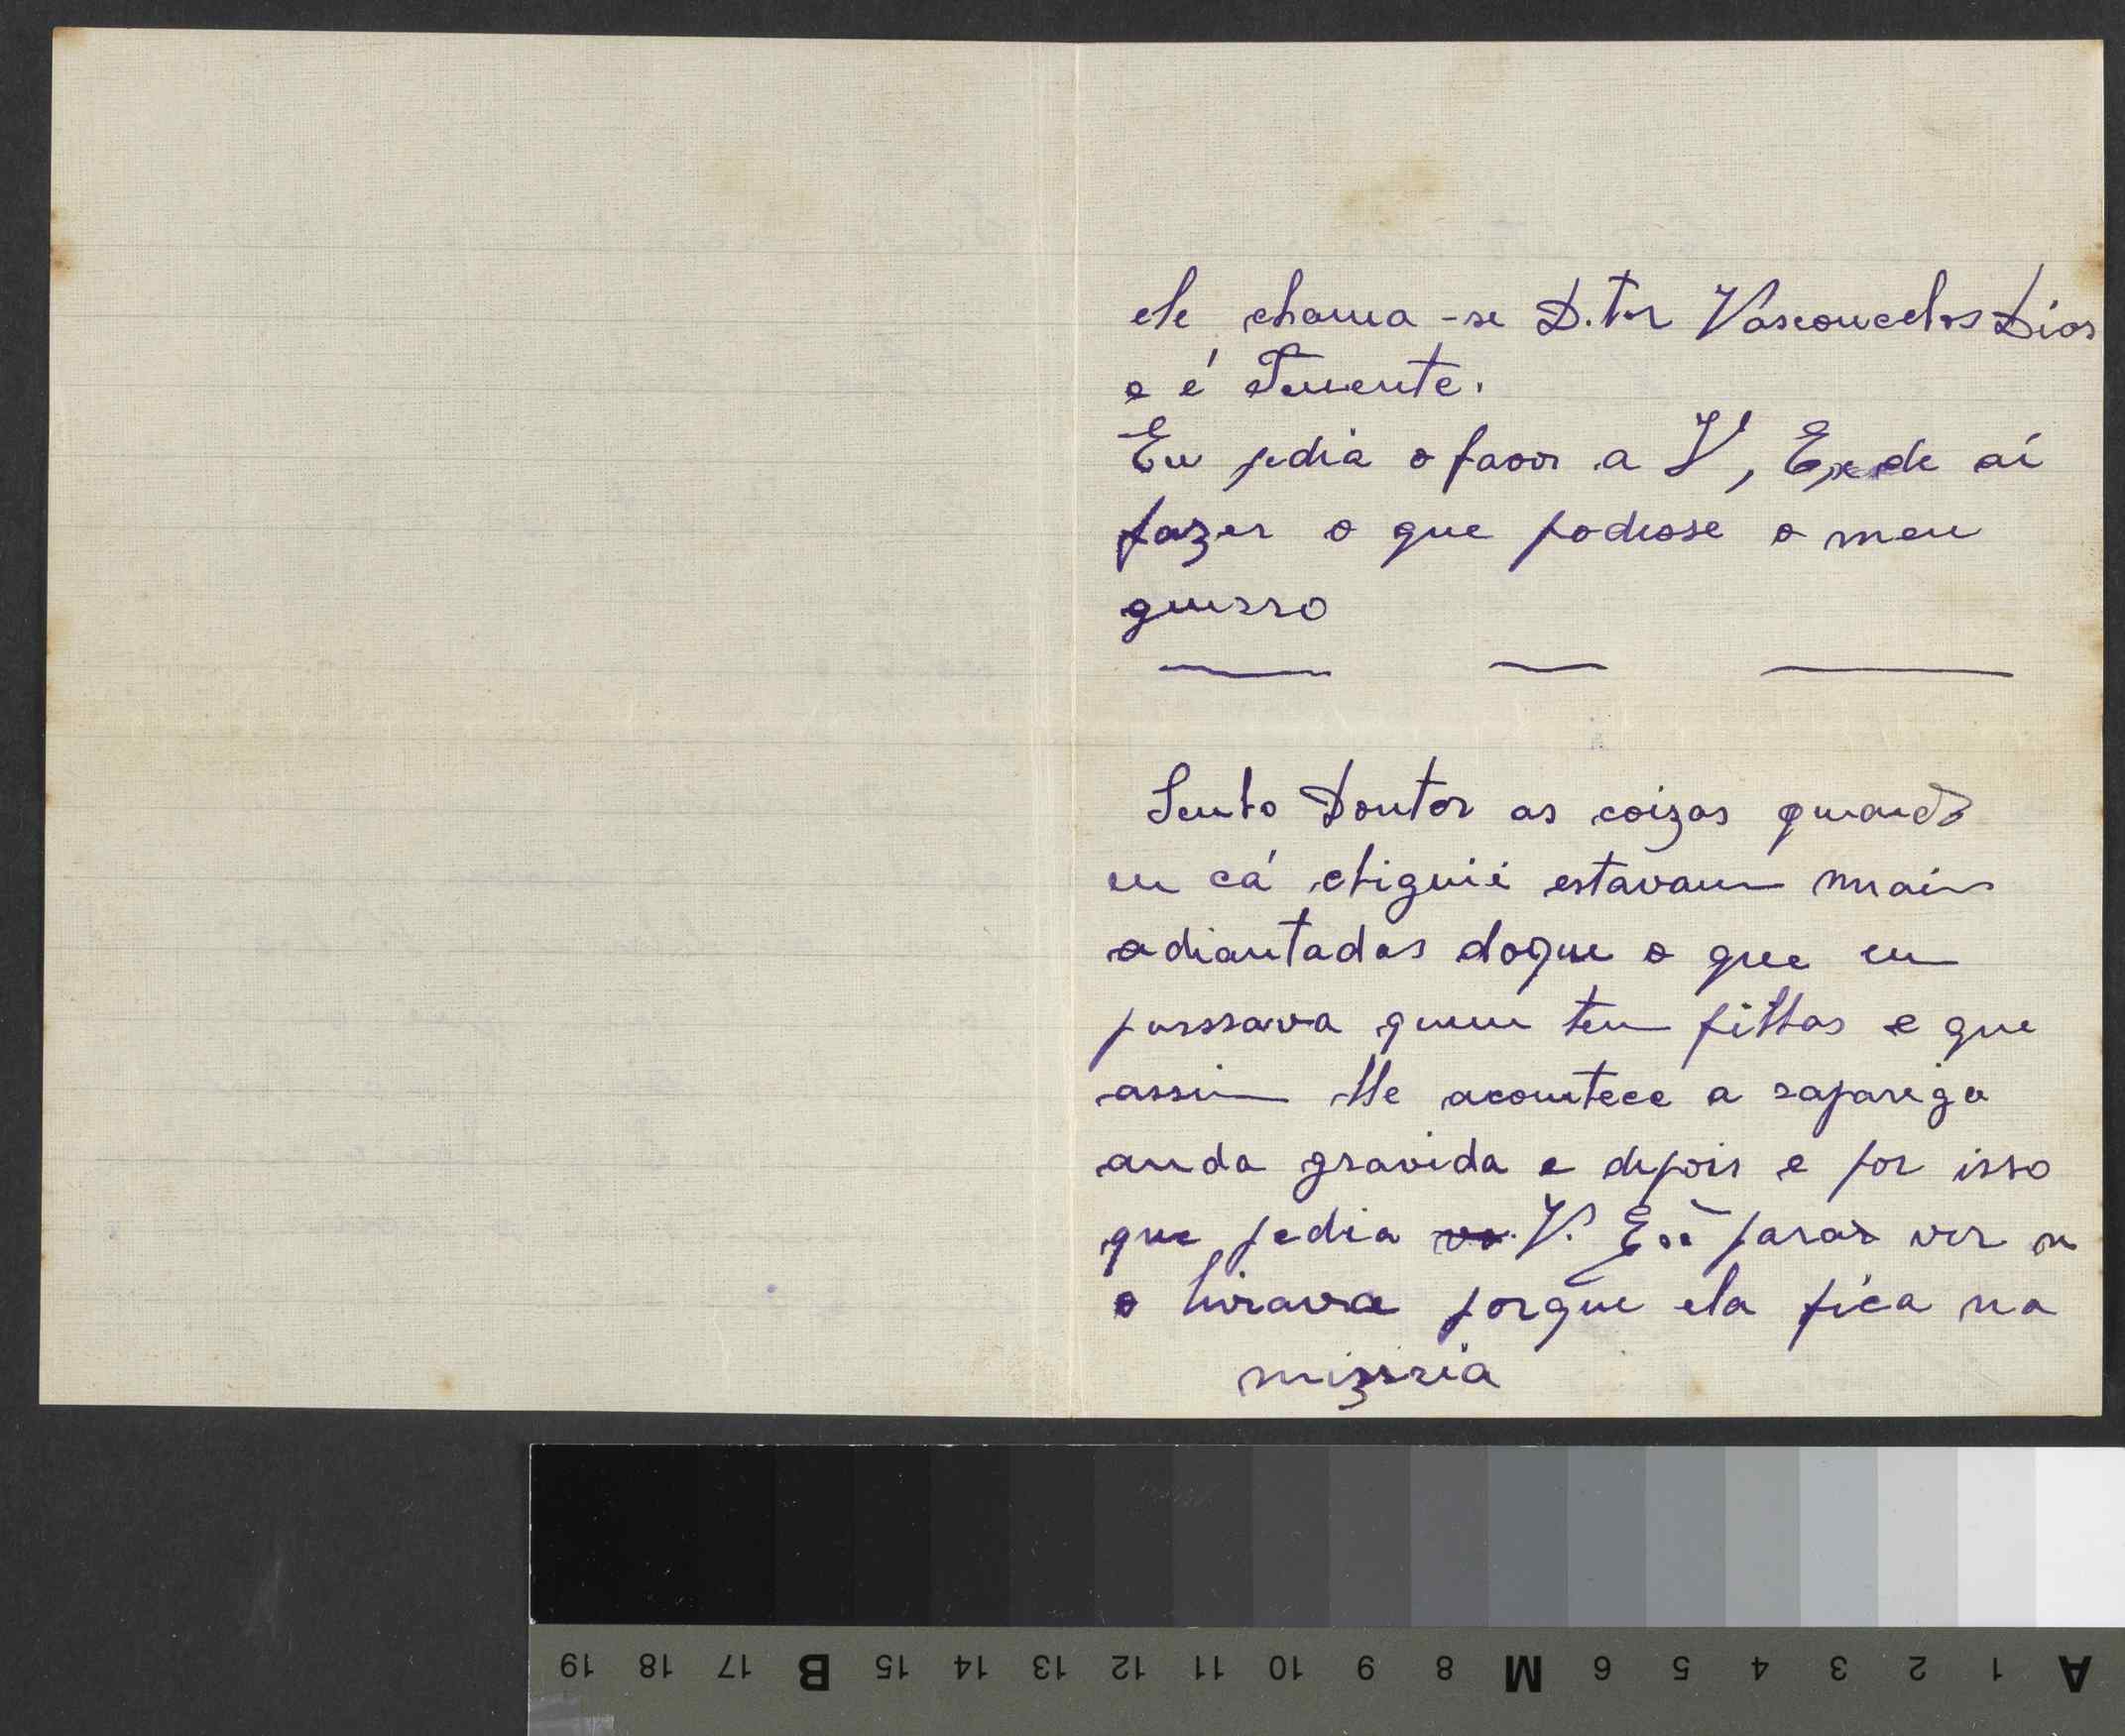 ele chama-se D.tor Vasconcelos Dias
e é Tenente.
Eu pedia o favor a V, Ex de aí
fazer o que podese o meu
guerro
Senho Doutor as coizas quando
eu cá chiguei estavam mais
adiantadas doque o que eu
penssava quem tem filhas e que
assim lhe acontece a raparega
anda gravida e depois e por isso
que pedia V. Exª para ver se
o livrava porque ela fica na
mizeria
19 18 17 B 15 14 13 12 11 10 9 8 M 6 5 4 3 2 1 A